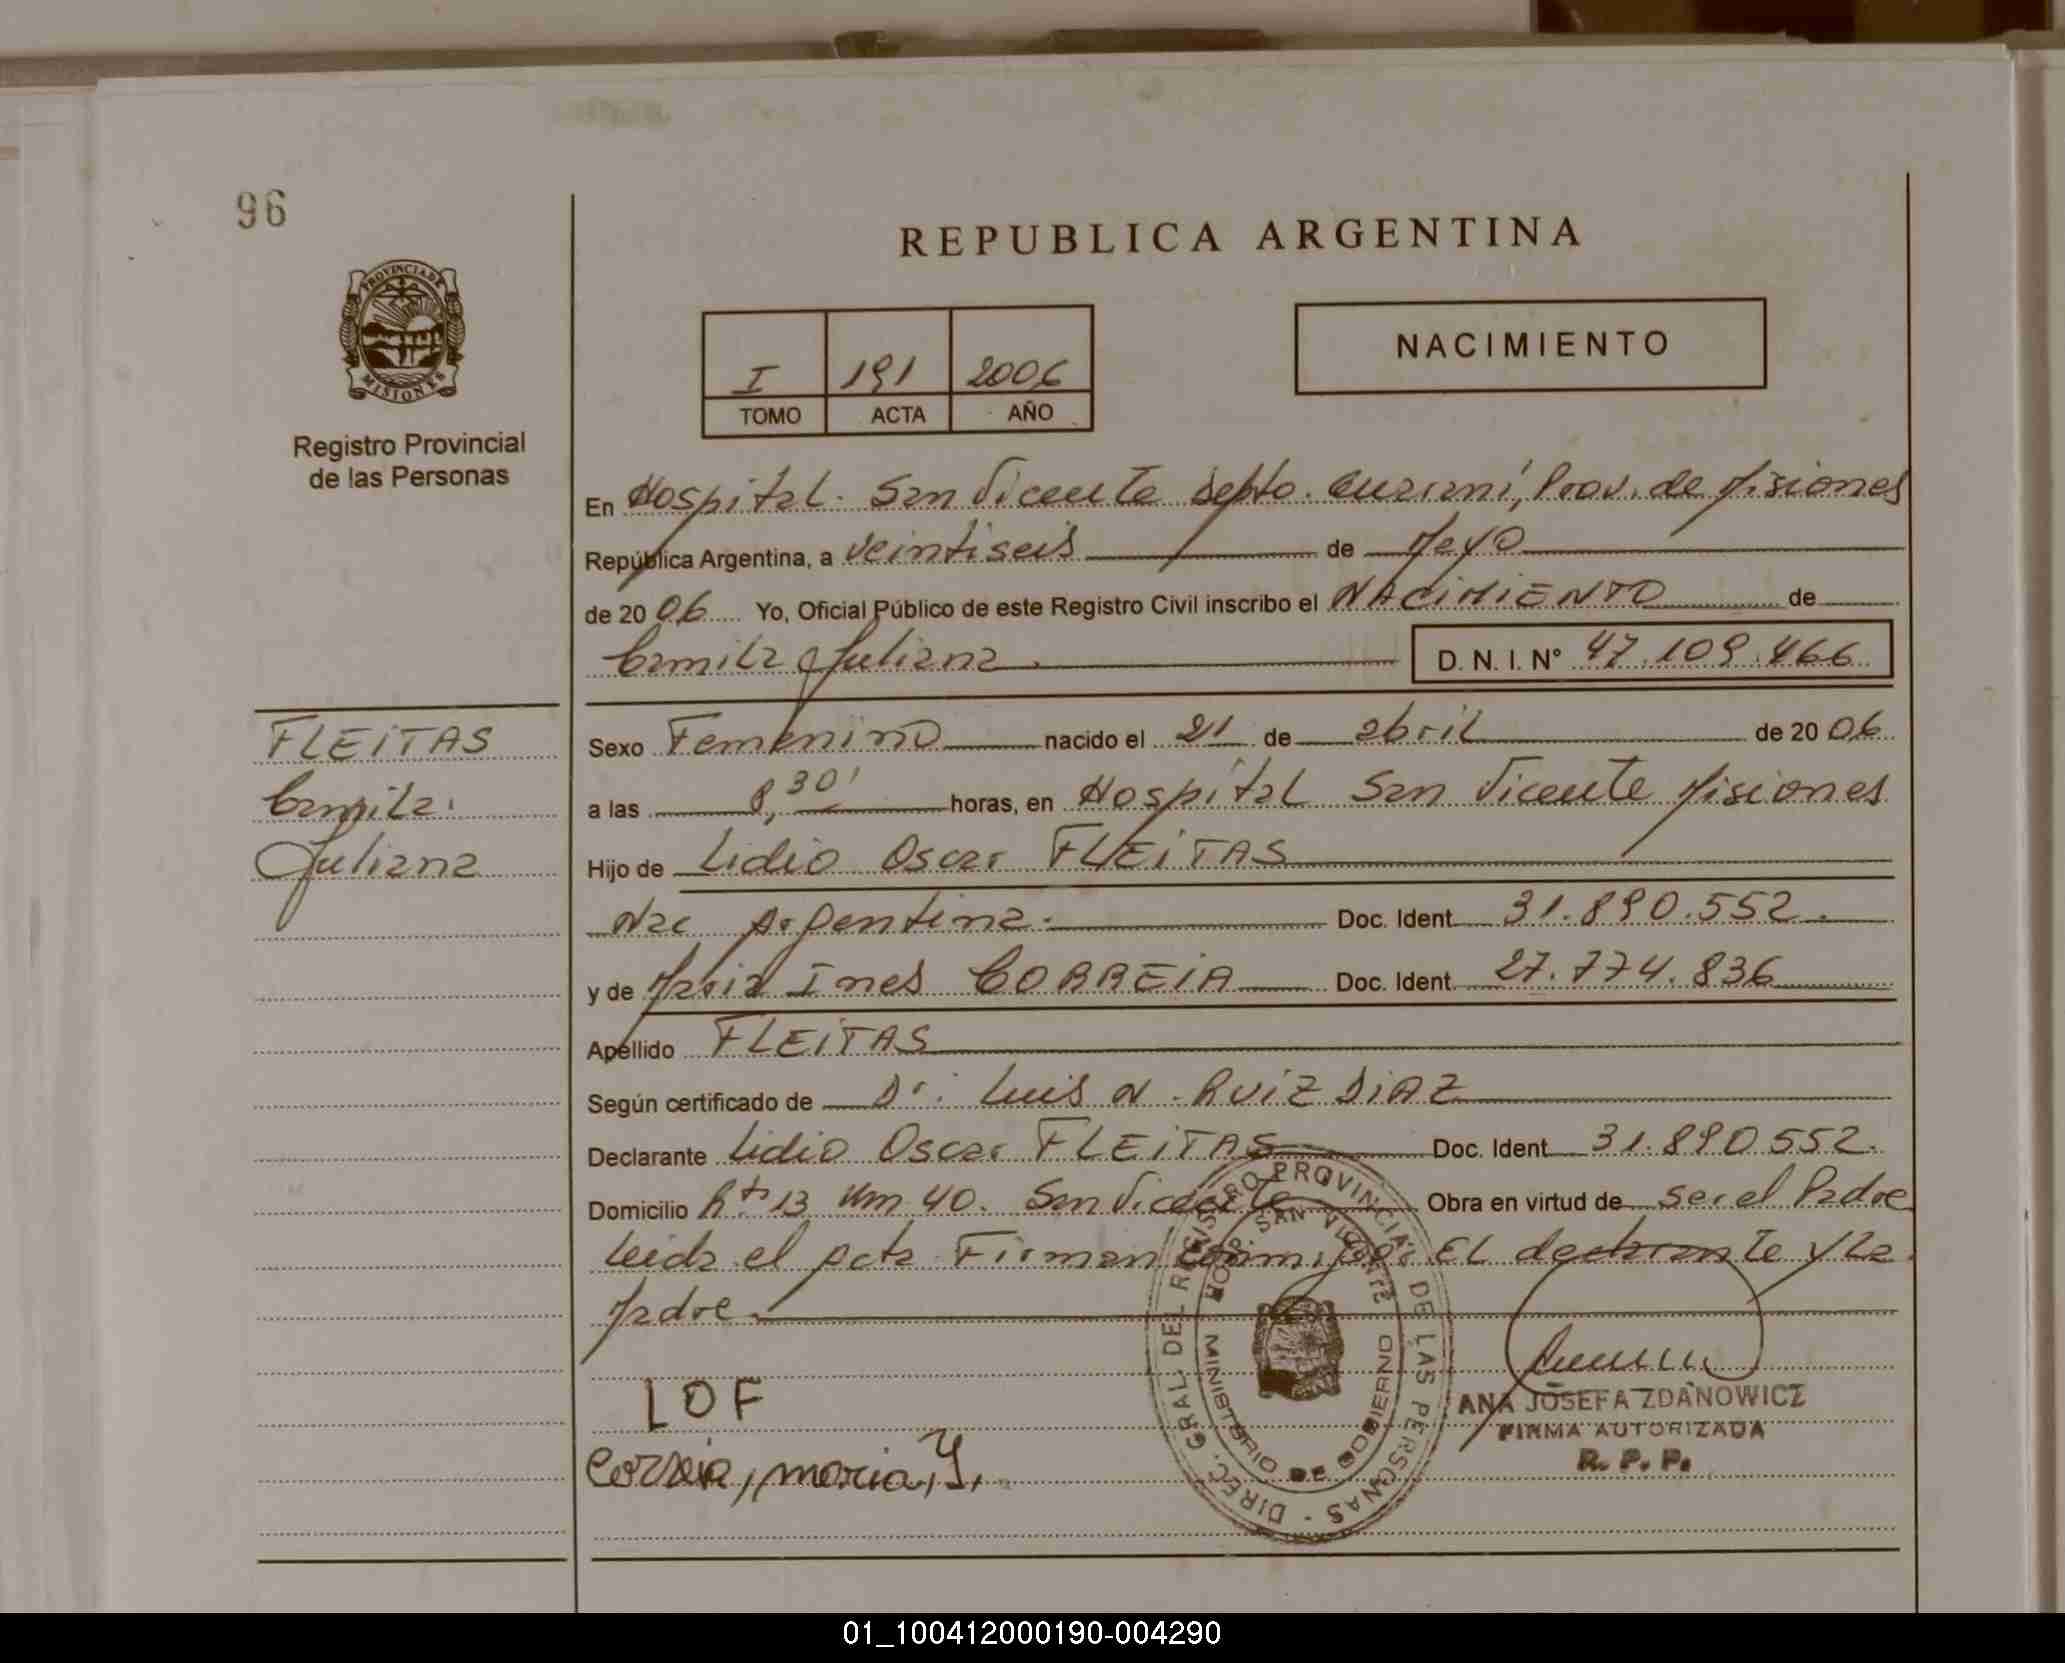 96
REPUBLICA ARGENTINA
PROVINCIA DE
MISIONES
Registro Provincial
de las Personas
NACIMIENTO
I 191 2006
TOMO ACTA AÑO
En Hospital San Vicente Depto. Guaraní, Prov. de Misiones
República Argentina, a veintiseis de Mayo
de 2006 Yo, Oficial Público de este Registro Civil inscribo el NACIMIENTO de
Camila Juliana D. N. I. Nº 47.109.466
FLEITAS
Camila
Juliana
Sexo Femenino nacido el 21 de abril de 2006
a las 8,30' horas, en Hospital San Vicente Misiones
Hijo de Lidio Oscar FLEITAS
Nac Argentina Doc. Ident. 31.890.552.
y de Maria Ines CORREIA Doc. Ident. 27.774.836
Apellido FLEITAS
Según certificado de Dr. Luis N. RUIZ DIAZ
Declarante Lidio Oscar FLEITAS Doc. Ident. 31.890.552.
Domicilio Rta 13 Km 40. San Vicente Obra en virtud de ser el Padre
Leida el Acta Firman conmigo EL declarante y La
Madre
DIREC. GRAL. DEL REGISTRO PROVINCIAL DE LAS PERSONAS
HOSP. SAN VICENTE
MINISTERIO DE GOBIERNO
LOF
Correia, maria, Y.
ANA JOSEFA ZDANOWICZ
FIRMA AUTORIZADA
R. P. P.
01_100412000190-004290